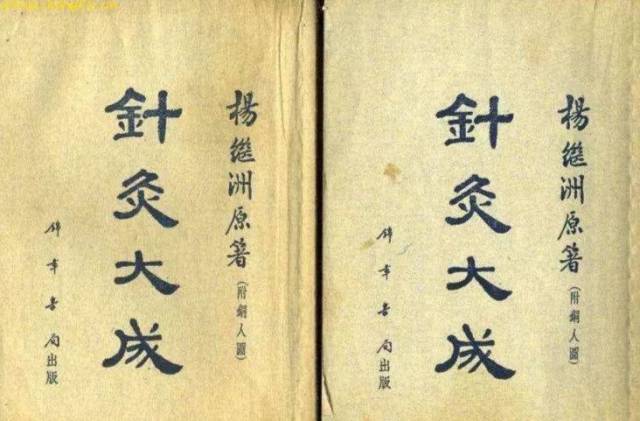 楊繼洲原著(附銅人圖)
針灸大成
錦章書局出版
楊繼洲原著(附銅人圖)
針灸大成
錦章書局出版